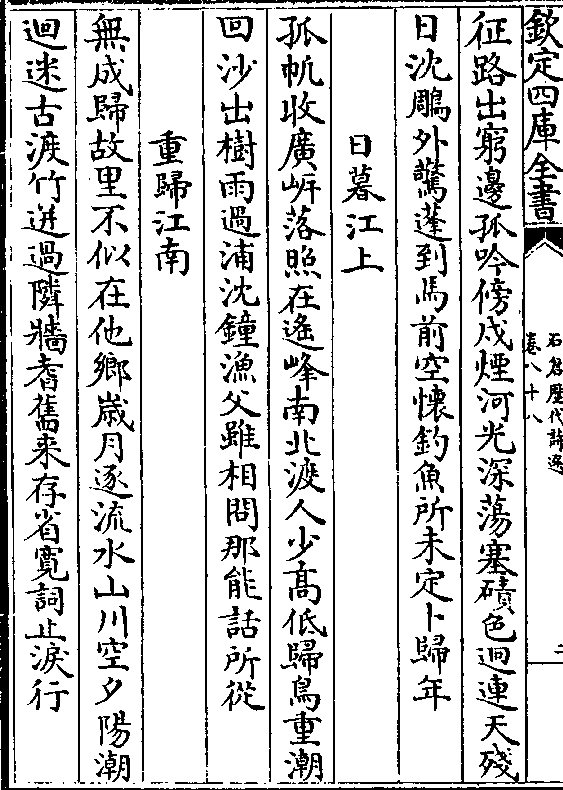 欽定四庫全書
石倉歷代詩選
卷八十八
二
征路出窮邊孤吟傍戍煙河光深蕩塞磧色迥連天殘
日沈鵰外驚蓬到馬前空懷釣魚所未定卜歸年
日暮江上
孤帆收廣岍落照在遙峰南北渡人少高低歸鳥重潮
回沙出樹雨過浦沈鐘漁父雖相問那能話所從
重歸江南
無成歸故里不似在他鄉歲月逐流水山川空夕陽潮
迴迷古渡竹迸過隣牆耆舊来存省寬詞止淚行